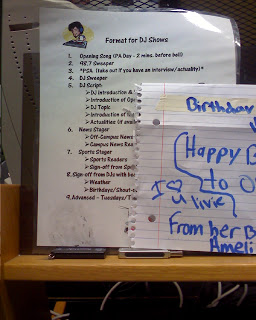 Format for DJ Shows
1. Opening Song (PA Day - 2 mins. before bell)
2. 98.7 Sweeper
3. *PSA (take out if you have an interview/actuality)*
4. DJ Sweeper
5. DJ Script
DJ Introduction &
Introduction of
DJ Topic
Introduction of
Actualities (if
6. News Stager
Off-Campus News
Campus News
7. Sports Stager
Sports Readers
Sign-off from
8. Sign-off from DJs with
Weather
Birthdays/Shout-
9. Advanced - Tuesdays/
Birthday
Happy B
to O
I ♡
u
livie
From her B
Ameli